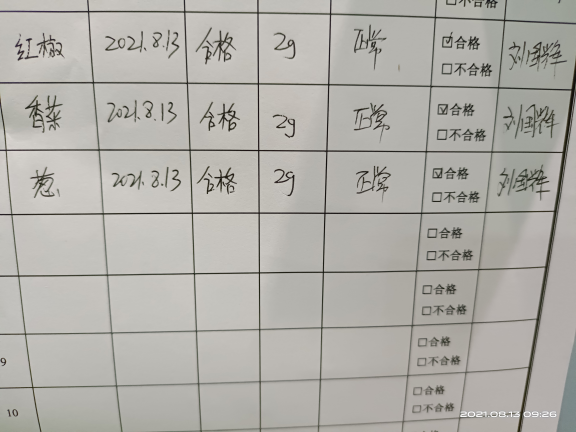 □不合格
红椒 2021.8.13 合格 2g 正常 ☑合格
□不合格
香菜 2021.8.13 合格 2g 正常 ☑合格
□不合格
葱 2021.8.13 合格 2g 正常 ☑合格
□不合格
□合格
□不合格
□合格
□不合格
9 □合格
□不合格
10 □合格
□不合格
2021.08.13 09:26